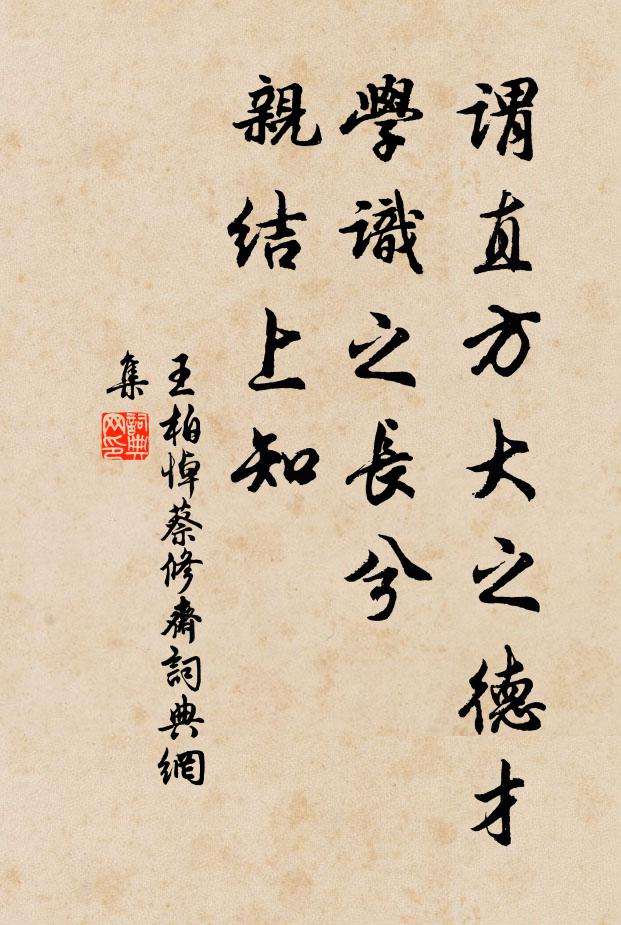 謂直方大之德才
學識之長兮
親結上知
王柏悼蔡修齋詞典網
集
詞典
网印